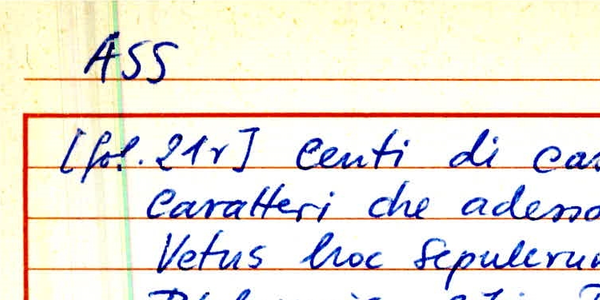 ASS
[fol. 21r] Centi di
Caratteri che adesso
Vetus hoc Sepulcrum